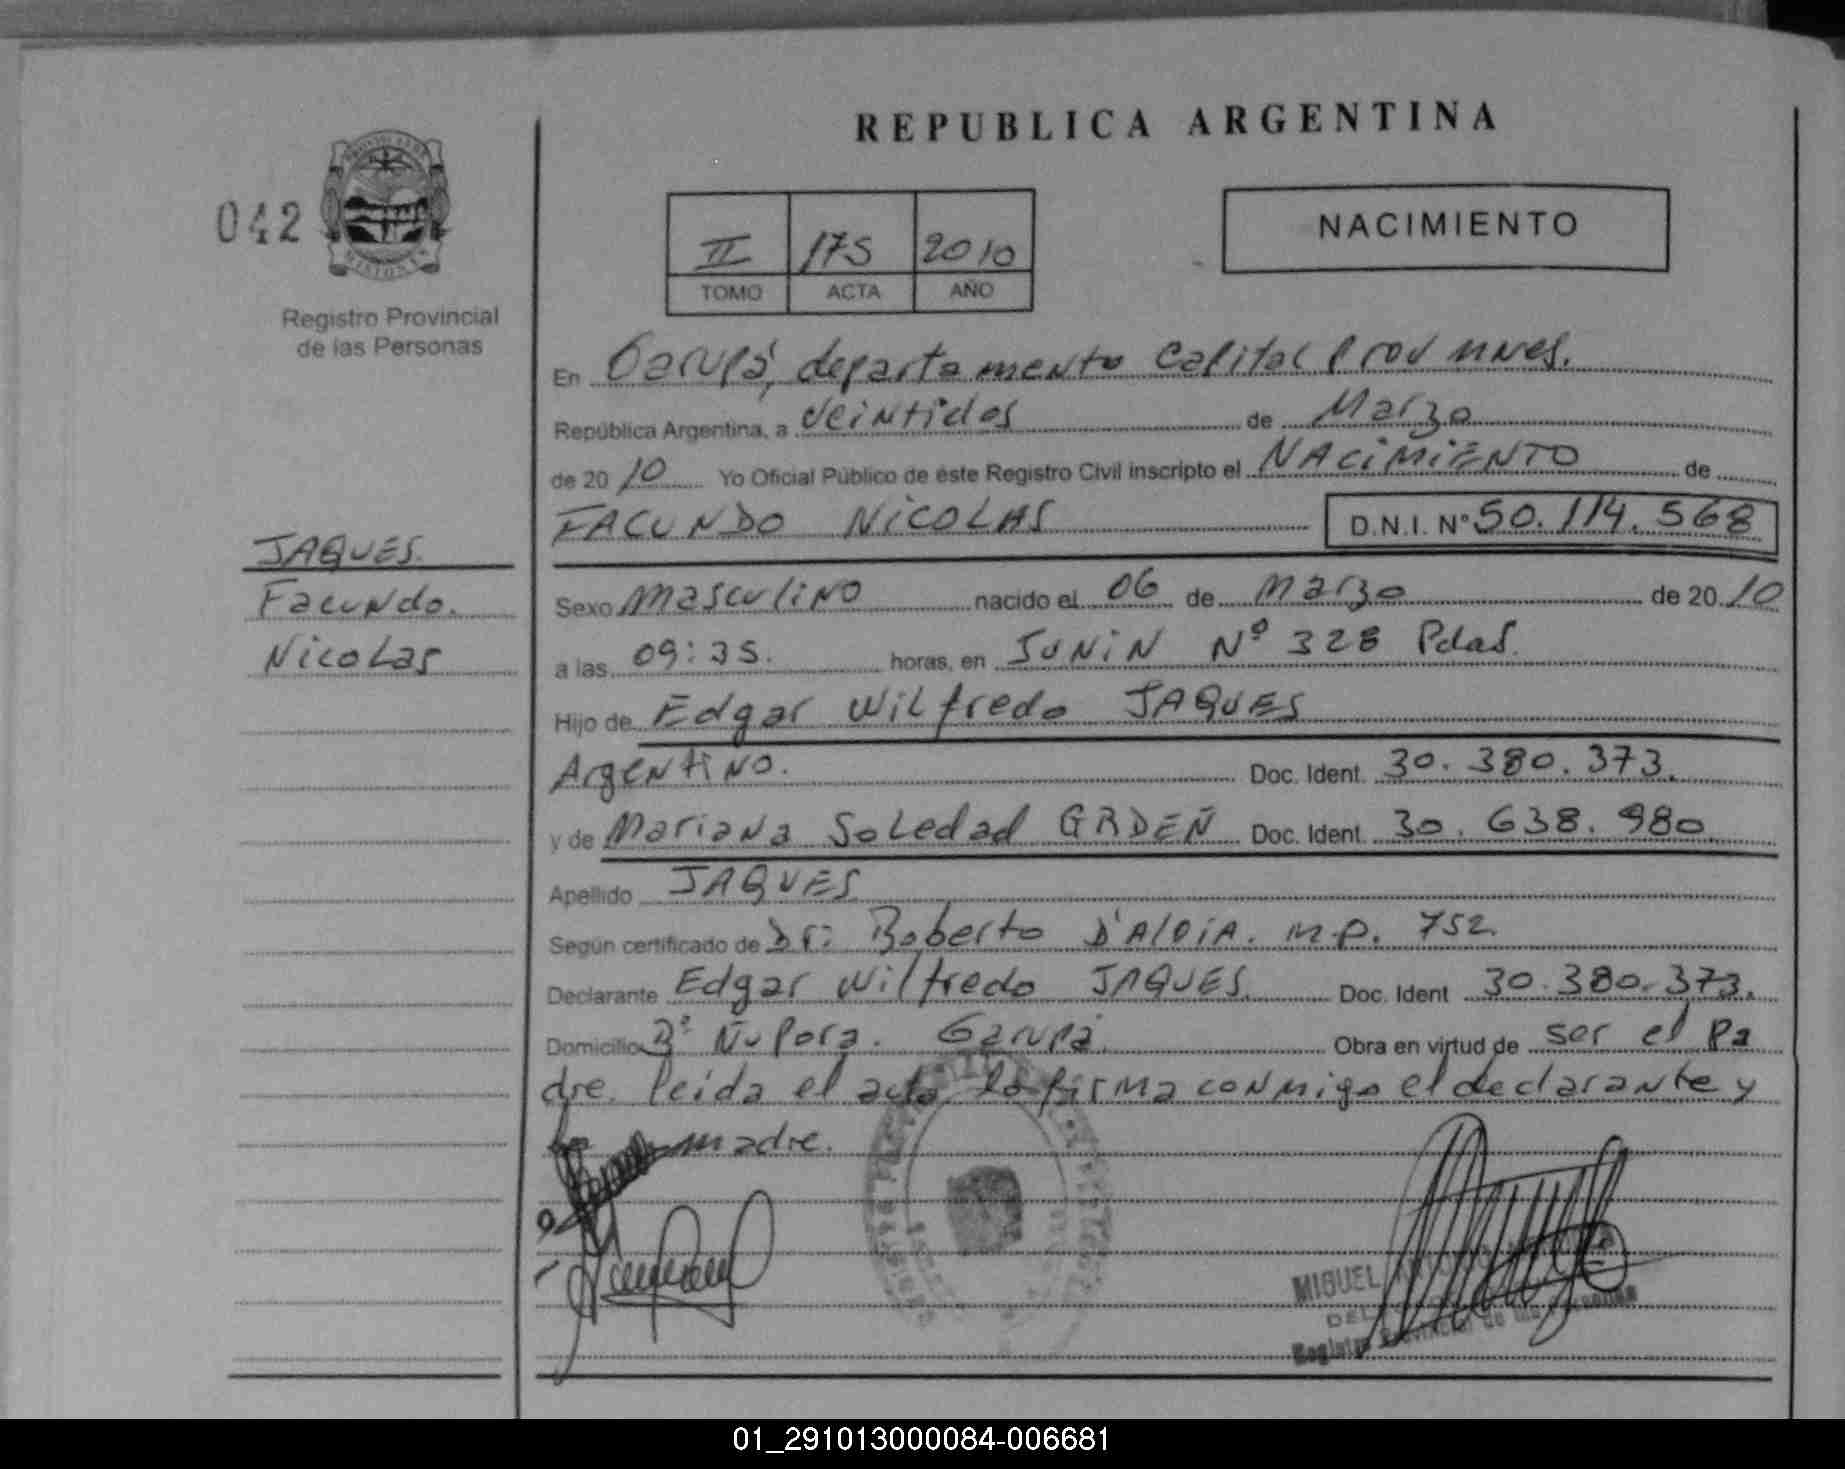 REPUBLICA ARGENTINA
042
PROVINCIA DE
MISIONES
Registro Provincial
de las Personas
II 175 2010
TOMO ACTA AÑO
NACIMIENTO
En Garupá, departamento Capital Prov mnes.
República Argentina, a veintidos de Marzo
de 20 10 Yo Oficial Público de éste Registro Civil inscripto el NACIMIENTO de
FACUNDO NICOLAS D.N.I. N° 50.114.568
JAQUES.
Facundo.
Nicolas
Sexo masculino nacido el 06 de marzo de 20 10
a las 09:35. horas, en JUNIN Nº 328 Pdas.
Hijo de Edgar Wilfredo JAQUES
Argentino. Doc. Ident. 30.380.373.
y de Mariana Soledad GRDEÑ Doc. Ident. 30.638.980
Apellido JAQUES
Según certificado de Dr: Roberto D'Aloia. m.p. 752.
Declarante Edgar Wilfredo JAQUES. Doc. Ident 30.380.373.
Domicilio Bº Ñu Pora. Garupá. Obra en virtud de ser el pa
dre. leida el acta la firma conmigo el declarante y
la madre.
MIGUEL ANTONIO
Registro Provincial de las Personas
01_291013000084-006681